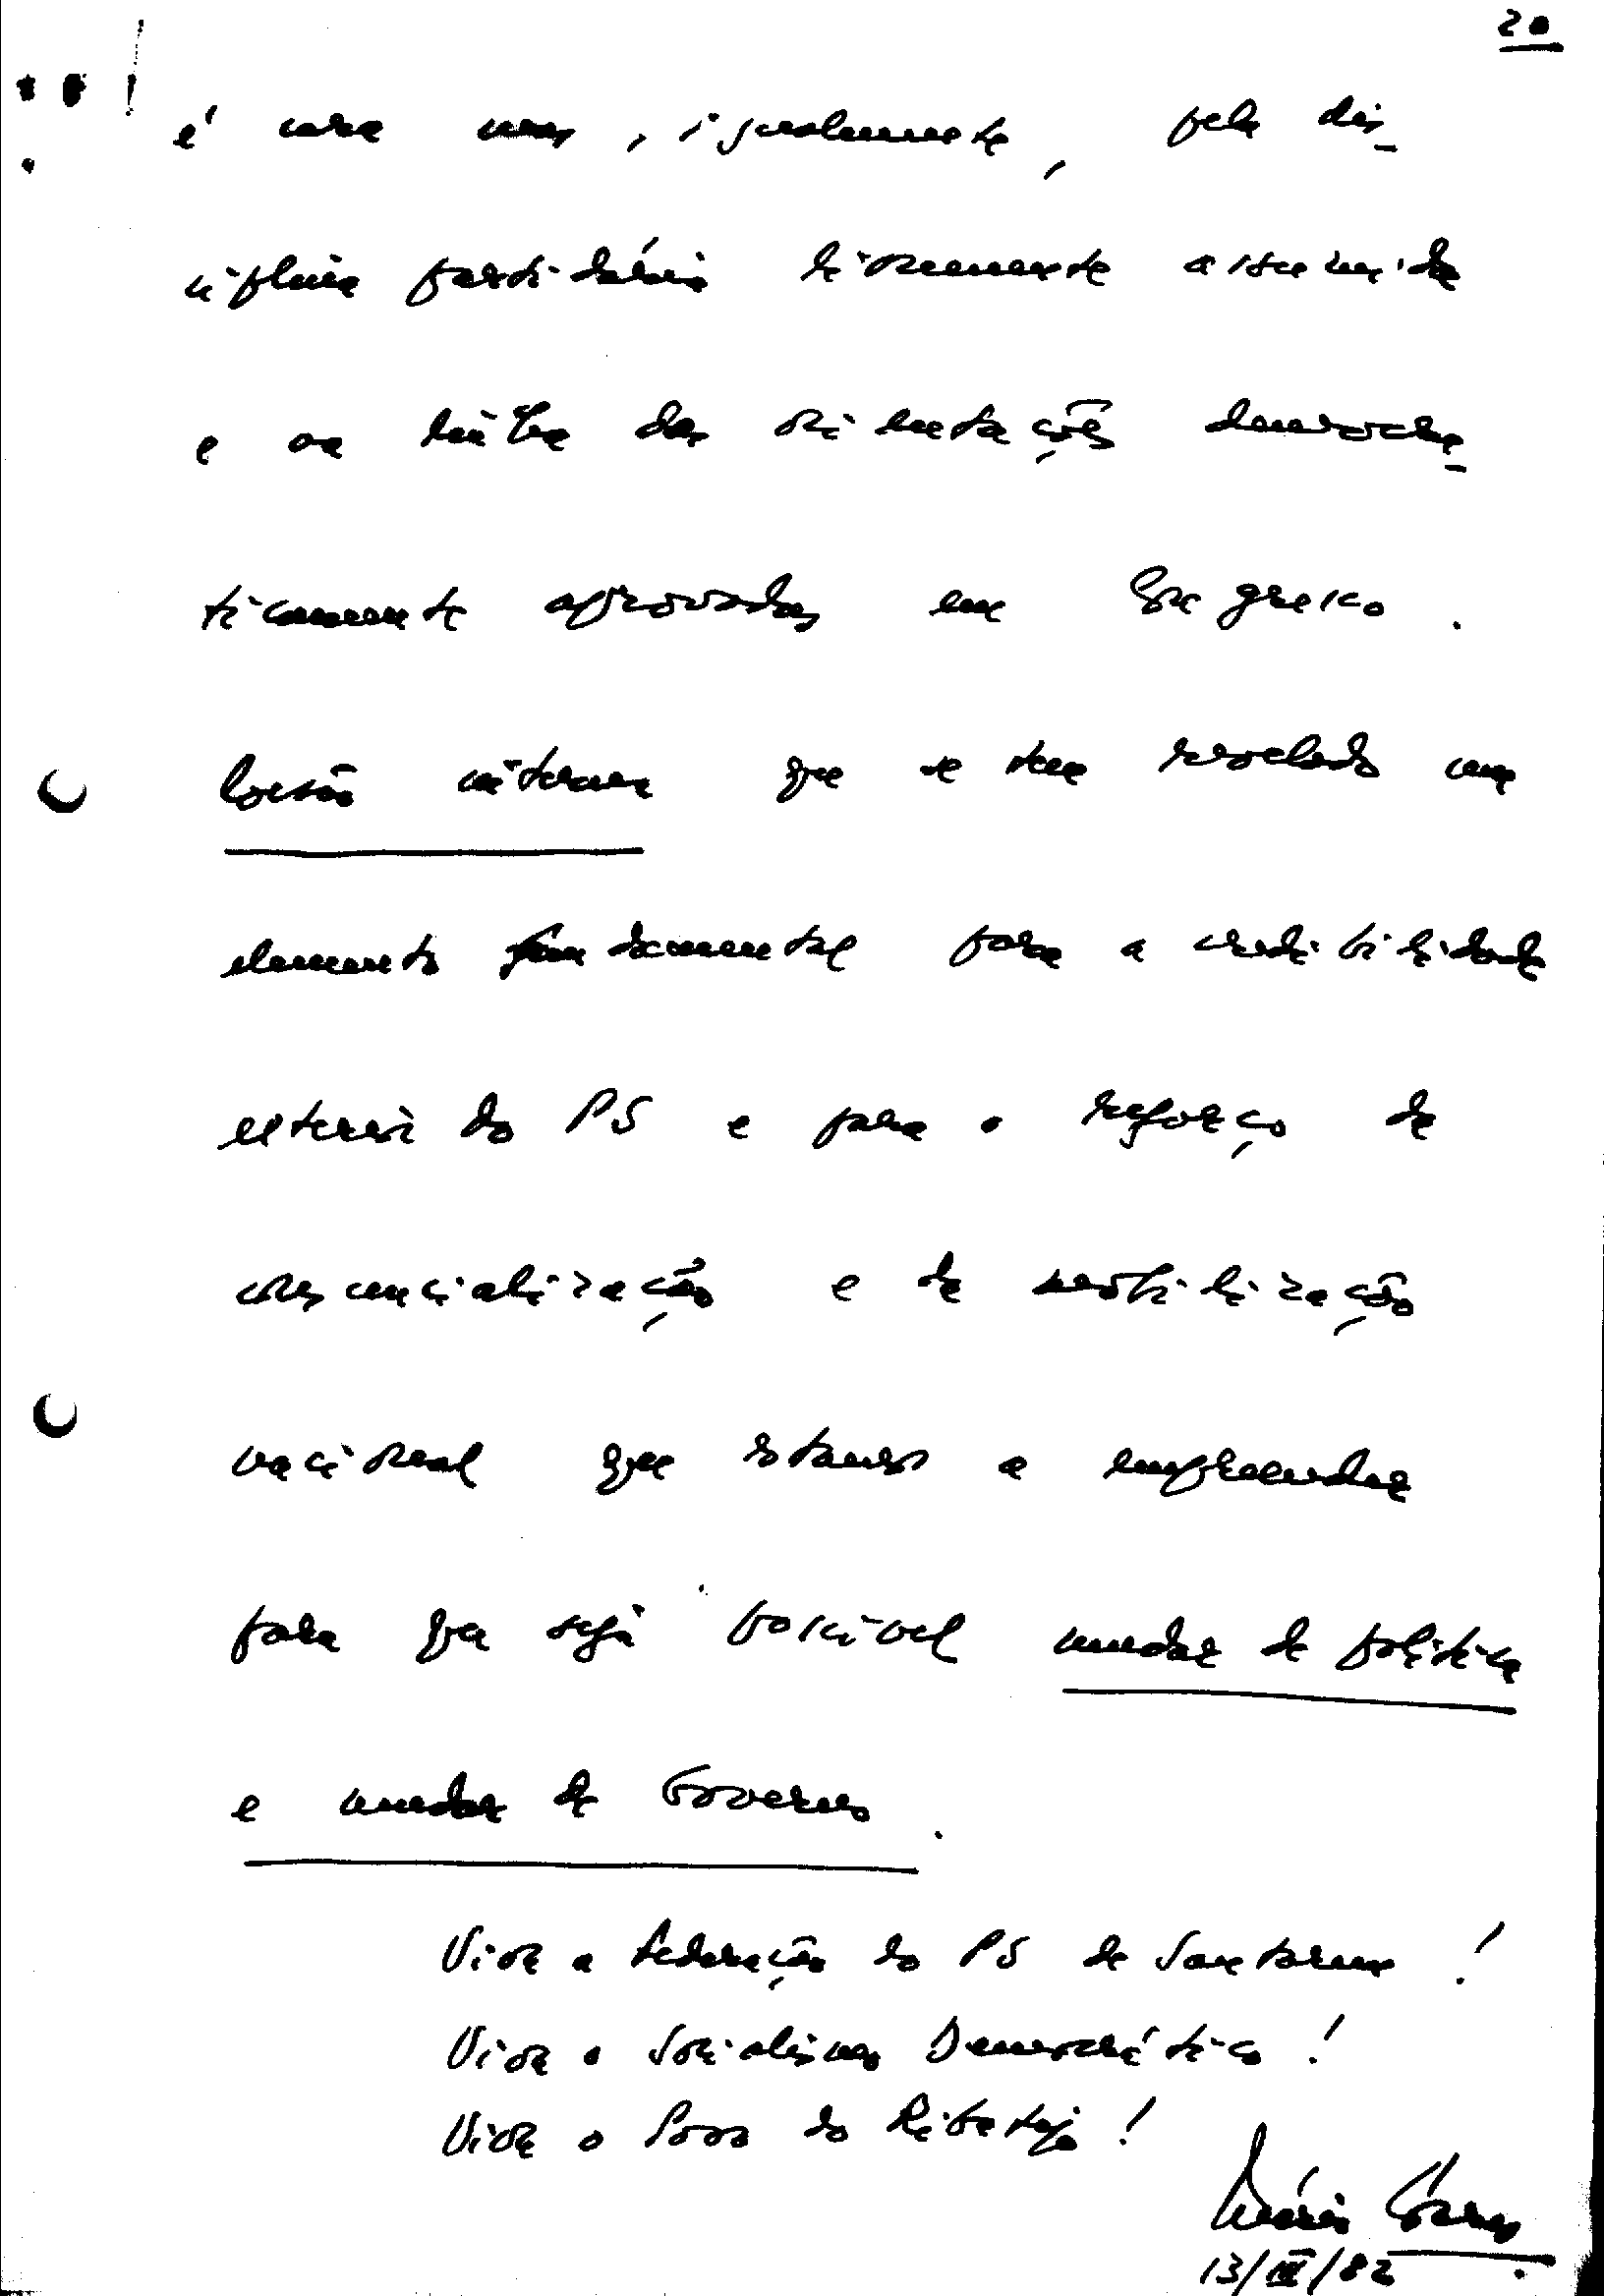 20
é como nos, igualmente, pela dis-
ciplina partidária livremente assumida
e na linha das orientações democra-
ticamente aprovadas em Congresso.
Coesão interna que se tem revelado um
elemento fundamental para a credibilidade
externa do PS e para o reforço de
consciencialização e de mobilização
nacional que estamos a empreender
para que seja possível mudar de política
e mudar de Governo.
Viva a Federação do PS de Santarem!
Viva o Socialismo Democrático!
Viva o Povo do Ribatejo!
Mário Soares
13/III/82